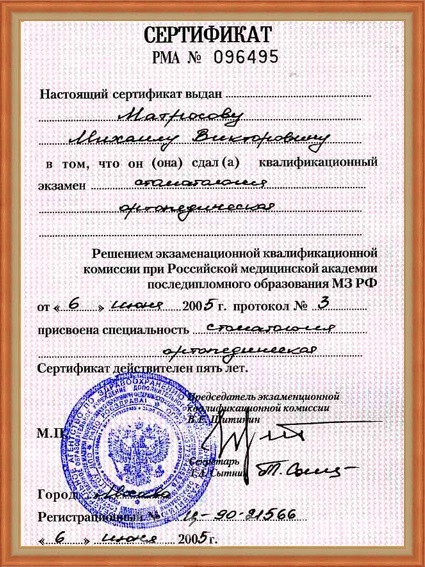 СЕРТИФИКАТ
РМА № 096495
Настоящий сертификат выдан
Матросову
Михаилу Викторовичу
в том, что он (она) сдал(а) квалификационный
экзамен стоматология
ортопедическая
Решением экзаменационной квалификационной
комиссии при Российской медицинской академии
последипломного образования МЗ РФ
от « 6 » июня 2005 г. протокол № 3
присвоена специальность стоматология
ортопедическая
Сертификат действителен пять лет.
Председатель экзаменационной
квалификационной комиссии
М.П.
Секретарь
Т.Д. Сытник
Город Москва
Регистрационный № Ц-90-21566
« 6 » июня 2005 г.